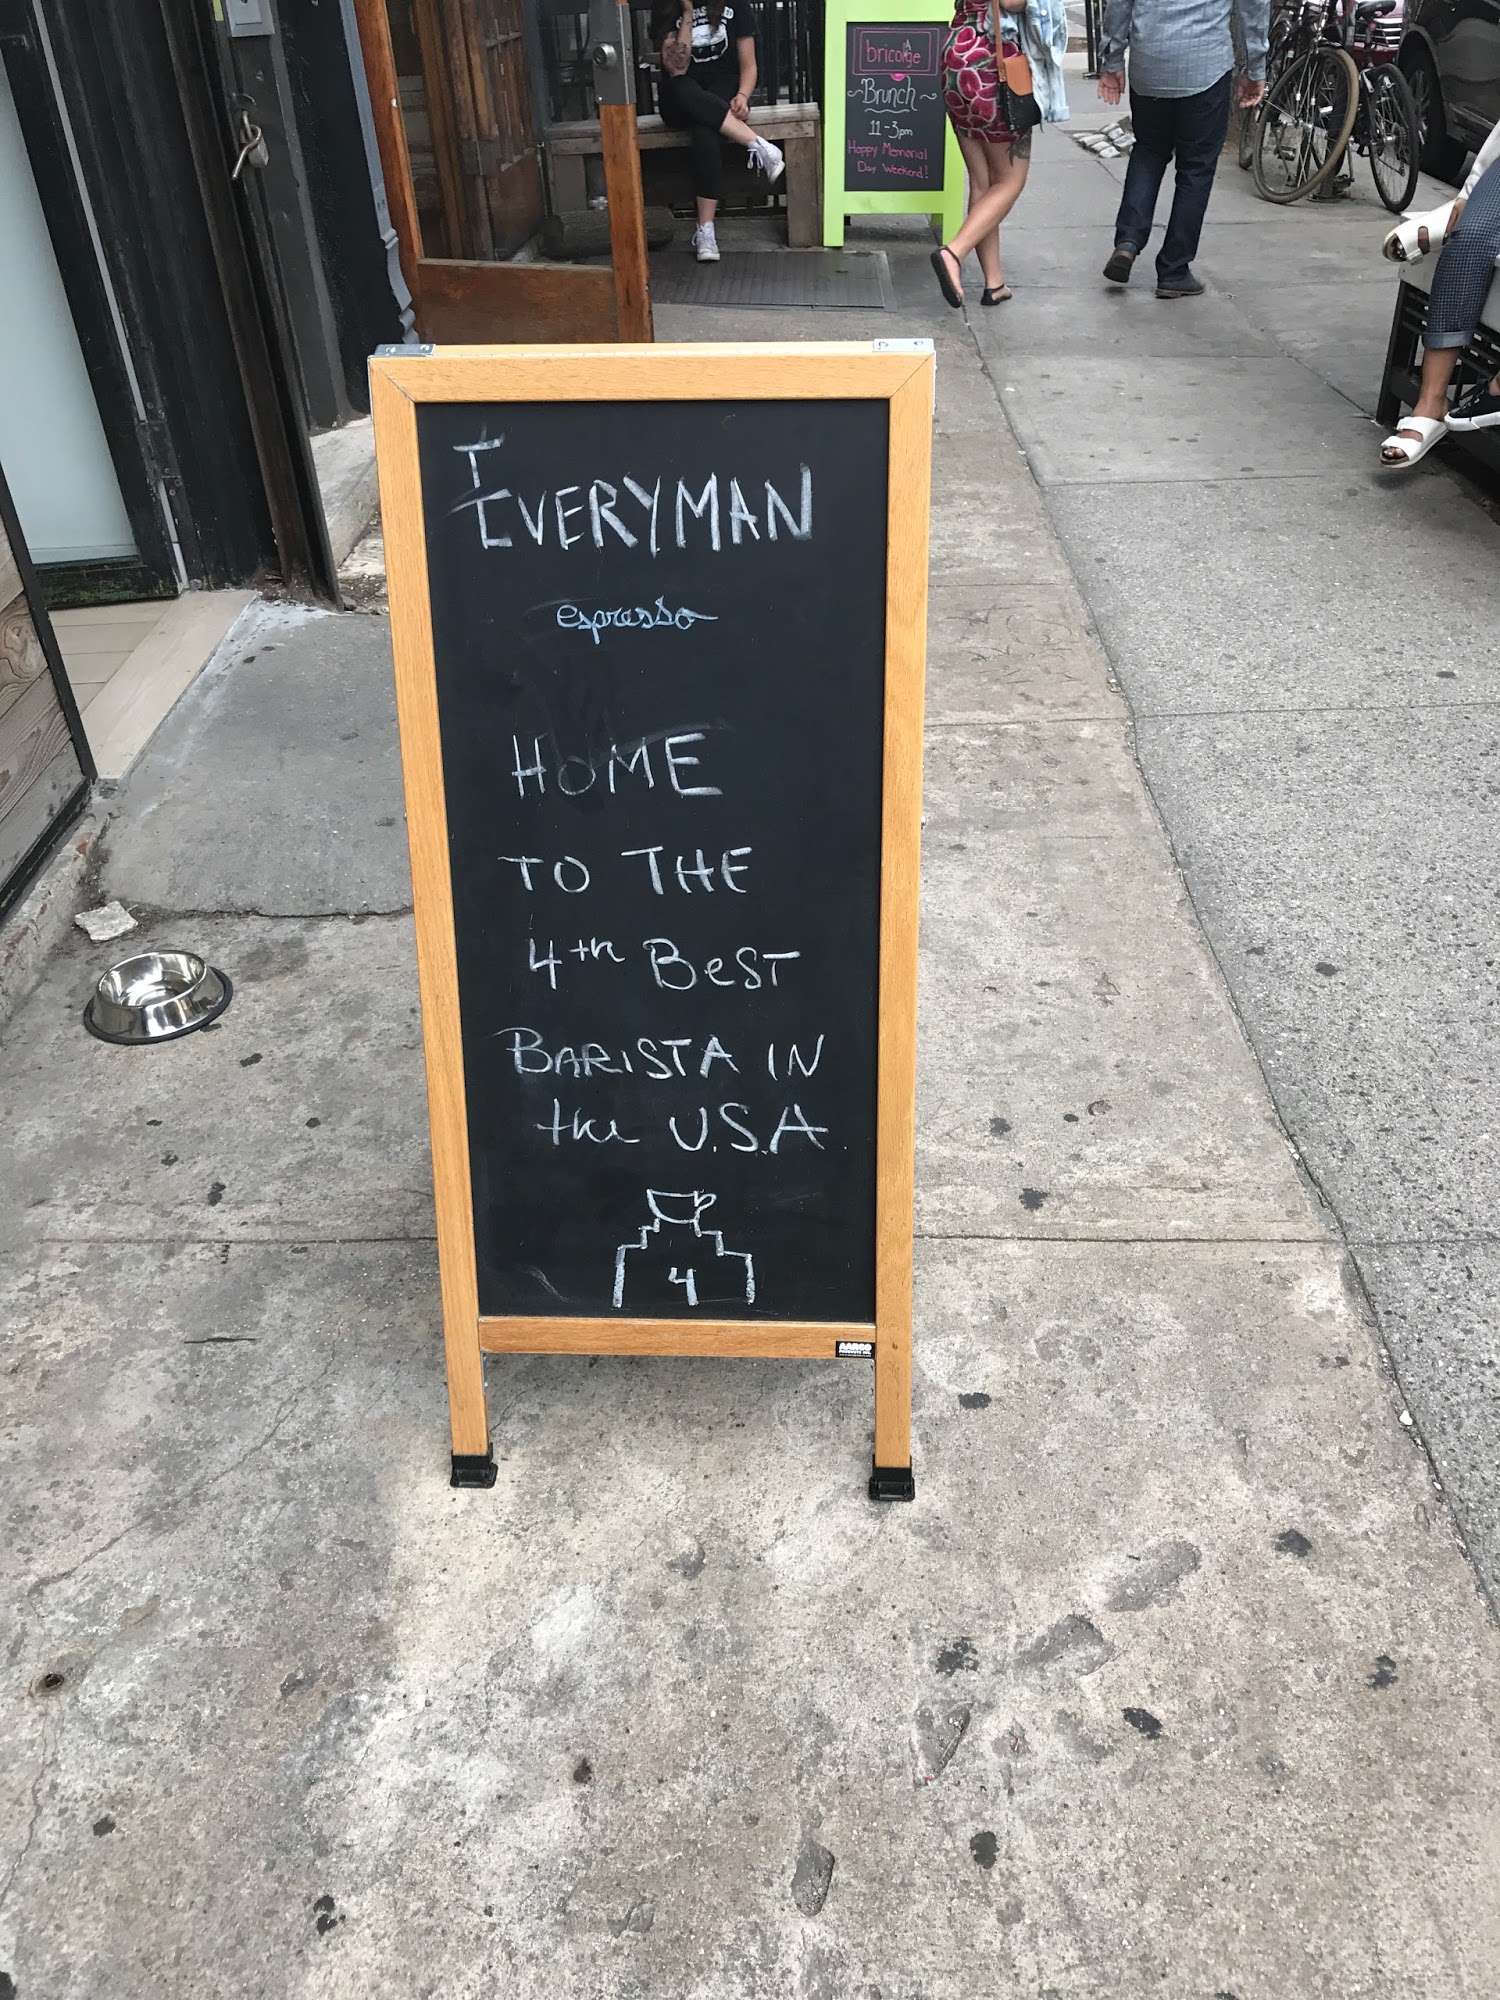 EVERYMAN
espresso
HOME
TO THE
4th BEST
BARISTA IN
the U.S.A.
4
bricolage
Brunch
11-3pm
Happy Memorial
Day Weekend!
AARCO